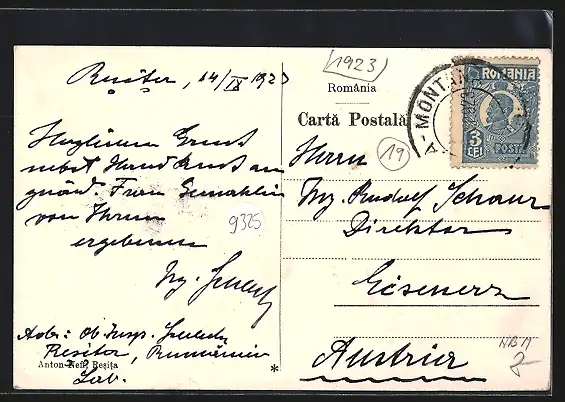 Resița, 14/IX 1923
Herzlichen Gruss
nebst Handkuss an
gnäd. Frau Gemahlin
von Ihrem
ergebenen
Ing.
Adr: Ob. Insp.
Resița, Rumänien
Anton Neff, Reșița
*
(1923)
România
Cartă Poștală
19
A-MONTAN
ROMANIA
3
LEI
POSTA
Herrn
Ing. Rudolf Schauer
Direktor
Eisenerz
Austria
9325
2